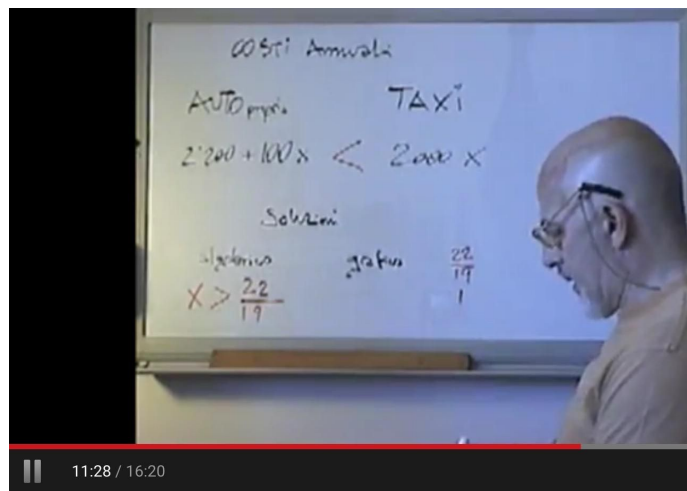 COSTI Annuali
AUTO propria TAXI
2'200 + 100 x < 2000 x
Soluzioni
algebrico grafico 22/19
x > 22/19 1
11:28 / 16:20